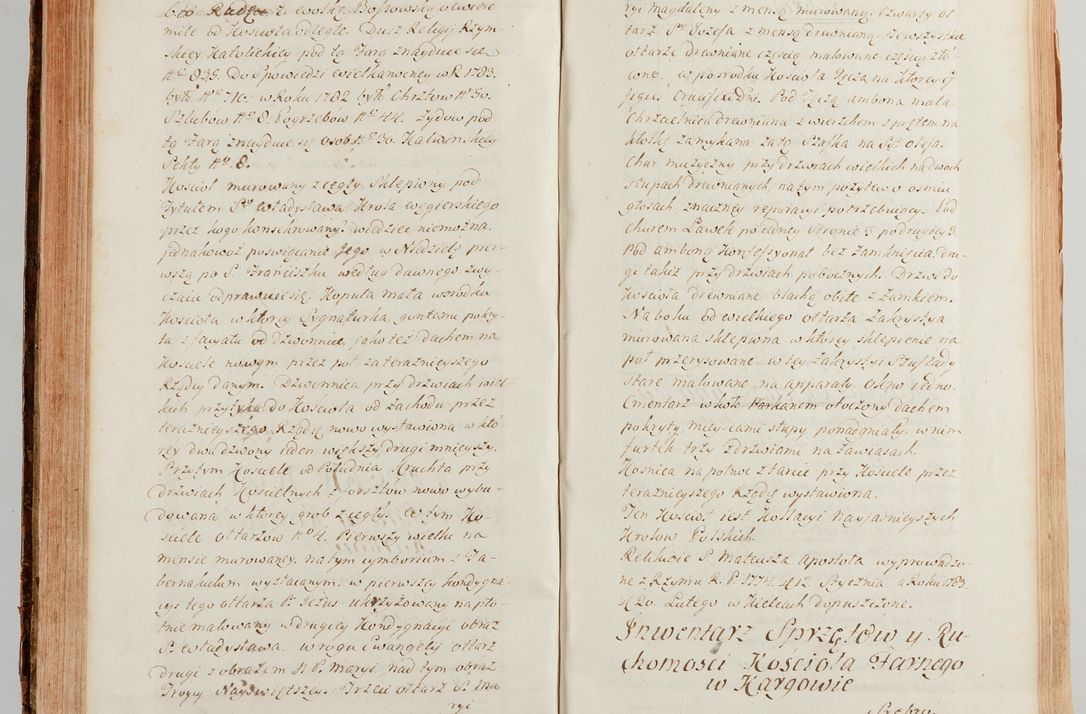 było Radge z Cwołka Bossowsky o ćwierc
mile od Kościoła odległe. Dusz Religij Rzym-
skiey Katolickiey pod tą Farą znayduie się
Nº 835. Do Spowiedzi wielkanocney w R. 1783.
było Nº 710. w Roku 1782 było Chrztow Nº 50.
Szlubow Nº 8. Pogrzebow Nº 44. Żydow pod
tą Farą znayduie się osob Nº 30. Kalwinskiey
Sekty Nº 8.
Kościoł murowany z cegły, Sklepiony pod
Tytułem Sº Władysława Krola węgierskiego
przez kogo konsekrowany? wiedziec niemożna.
jednakowoż poswięcanie Jego w Niedzielę pier-
wszą po S. Franciszku według dawnego zwy-
czaiu odprawuie się. Kopuła mała w srodku
Kościoła w ktorey Sygnaturka, gontami pokry-
ta z facyatą od dzwonnic, jako też dachem na
Kościele nowym przez puł za teraznieyszego
Rządcy danym. Dzwonnica przy drzwiach wiel-
kich przytyka do Kościoła od zachodu przez
teraznieyszego Rządcę nowo wystawiona w któ-
rey dwa dzwony ieden większy drugi mnieyszy.
Przytym Kościele od Południa Kruchta przy
drzwiach Kościelnych z forsztów nowo wybu-
dowana w ktorey grob z cegły. W tym Ko-
sciele ołtarzow Nº 4. Pierwszy wielki na
mensie murowaney, na tym cymborium z Ta-
bernakulum wyzłacanym. w pierwszey kondygna-
cyi tego ołtarza P. Jezus ukrzyżowany na płó-
tnie malowany w drugiey Kondygnacyi obraz
S. Władysława. w rogu Ewangelij ołtarz
drugi z obrazem N P. Maryi nad tym obraz
Troycy Nayświętszey. Trzeci ołtarz S. Ma
ryi
ryi Magdaleny z mensą murowaną. Czwarty oł-
tarz Sº Jozefa z mensą drewnianą. Te wszystkie
ołtarze drewniane częscią malowane częscią zło-
cone. w posrodku Kościoła Tęcza na ktorey Ef-
figies Crucifixi Dni. Pod Tęczą ambona mała.
Chrzcielnica drewniana z wierzchem z prętem na
kłotkę zamykana za tą Szafka na Sse oleja.
Chor muzyczny przy drzwiach wielkich na dwoch
słupach drewnianych, na tym pozytew o osmiu
głosach, znaczney reparacyi potrzebuiący. Pod
churem Ławek po iedney stronie 8. po drugiey 8.
Pod amboną Konfessyonał bez zamknięcia dru-
gi takiż przy drzwiach pobocznych. Drzwi do
Kościoła drewniane blachą obite z Zamkiem.
Na boku od wielkiego ołtarza Zakrystya
murowana sklepiona w ktorey sklepienie na
puł przerysowane. w tey Zakrystyi Szuflady
stare malowane, na apparaty. Okno iedno.
Cmentarz w koło Parkanem otoczony dachem
pokryty, mieyscami słupy ponadgniały. w nim
furtek trzy z drzwiami na zawiasach.
Kosnica na połnoc z tarcic przy Kościele przez
teraznieyszego Rządcę wystawiona.
Ten Kościoł iest Kollacyi Nayjasnieyszych
Krolow Polskich.
Relikwie S. Mateusza Apostoła wyprowadzo-
ne z Rzymu R. P. 1774. d 12 Stycznia a Roku 1783.
d 20. Lutego w Kielcach dopuszczone.
Inwentarz Sprzętów y Ru-
chomosci Kościoła Farnego
w Kargowie
Srebro